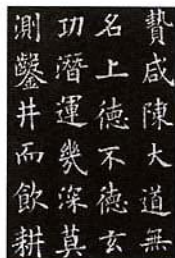 贊咸陳大道無
名上德不德玄
功潛運幾深莫
測鑿井而飲耕